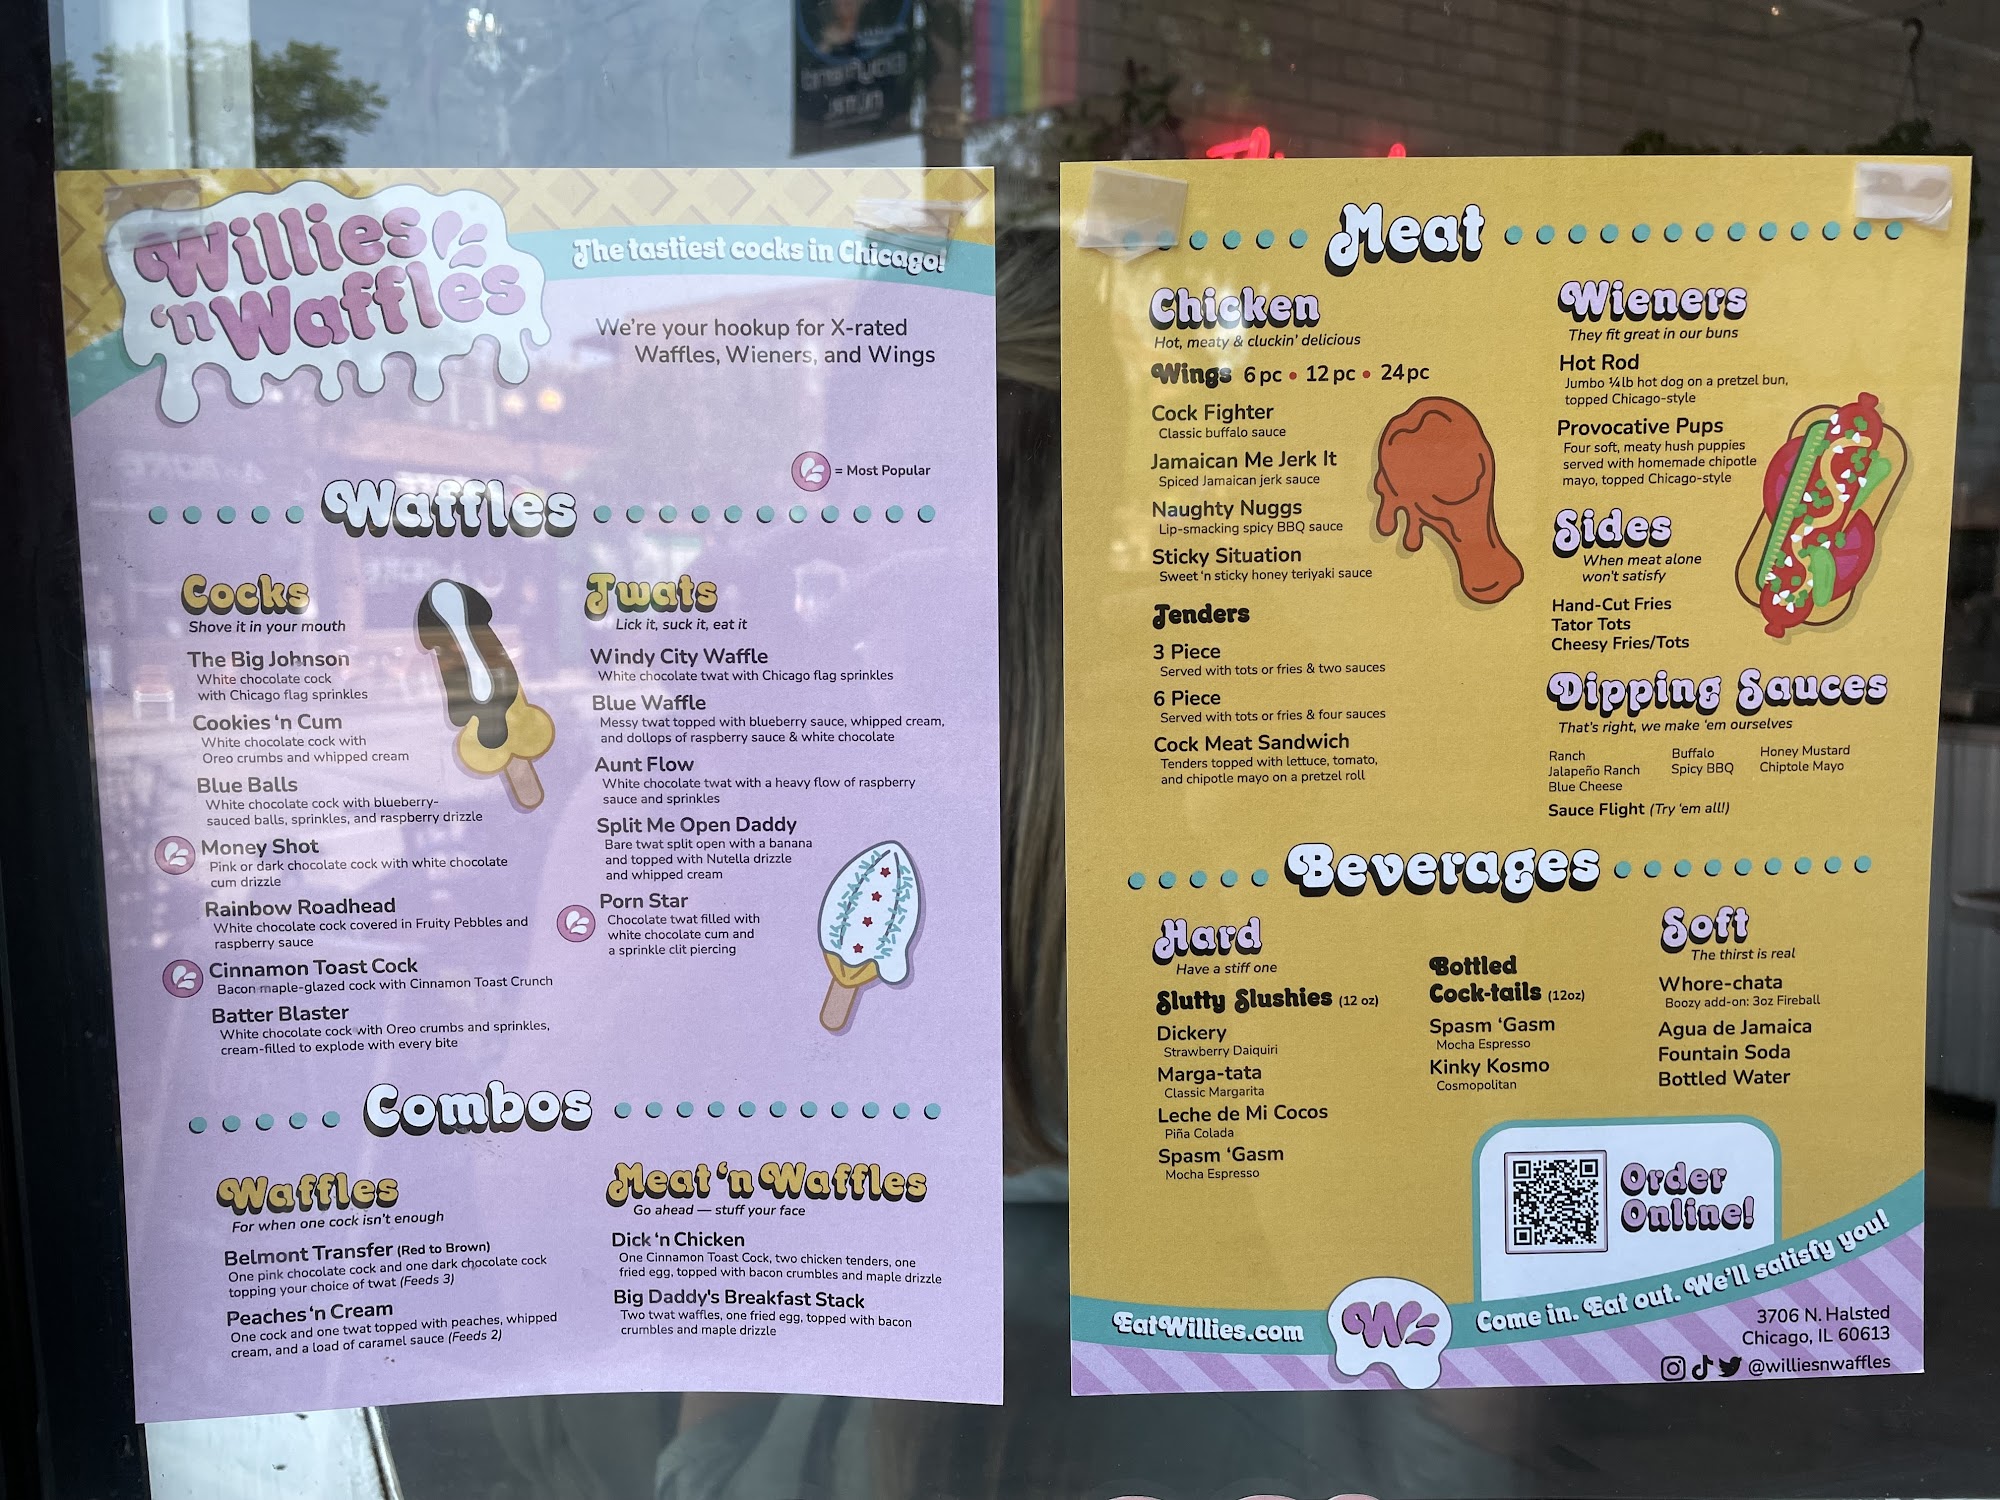 Willies
'n Waffles
The tastiest cocks in Chicago!
We're your hookup for X-rated
Waffles, Wieners, and Wings
= Most Popular
Waffles
Cocks
Shove it in your mouth
The Big Johnson
White chocolate cock
with Chicago flag sprinkles
Cookies 'n Cum
White chocolate cock with
Oreo crumbs and whipped cream
Blue Balls
White chocolate cock with blueberry-
sauced balls, sprinkles, and raspberry drizzle
Money Shot
Pink or dark chocolate cock with white chocolate
cum drizzle
Rainbow Roadhead
White chocolate cock covered in Fruity Pebbles and
raspberry sauce
Cinnamon Toast Cock
Bacon maple-glazed cock with Cinnamon Toast Crunch
Batter Blaster
White chocolate cock with Oreo crumbs and sprinkles,
cream-filled to explode with every bite
Twats
Lick it, suck it, eat it
Windy City Waffle
White chocolate twat with Chicago flag sprinkles
Blue Waffle
Messy twat topped with blueberry sauce, whipped cream,
and dollops of raspberry sauce & white chocolate
Aunt Flow
White chocolate twat with a heavy flow of raspberry
sauce and sprinkles
Split Me Open Daddy
Bare twat split open with a banana
and topped with Nutella drizzle
and whipped cream
Porn Star
Chocolate twat filled with
white chocolate cum and
a sprinkle clit piercing
Combos
Waffles
For when one cock isn't enough
Belmont Transfer (Red to Brown)
One pink chocolate cock and one dark chocolate cock
topping your choice of twat (Feeds 3)
Peaches 'n Cream
One cock and one twat topped with peaches, whipped
cream, and a load of caramel sauce (Feeds 2)
Meat 'n Waffles
Go ahead — stuff your face
Dick 'n Chicken
One Cinnamon Toast Cock, two chicken tenders, one
fried egg, topped with bacon crumbles and maple drizzle
Big Daddy's Breakfast Stack
Two twat waffles, one fried egg, topped with bacon
crumbles and maple drizzle
Meat
Chicken
Hot, meaty & cluckin' delicious
Wings 6 pc • 12 pc • 24 pc
Cock Fighter
Classic buffalo sauce
Jamaican Me Jerk It
Spiced Jamaican jerk sauce
Naughty Nuggs
Lip-smacking spicy BBQ sauce
Sticky Situation
Sweet 'n sticky honey teriyaki sauce
Tenders
3 Piece
Served with tots or fries & two sauces
6 Piece
Served with tots or fries & four sauces
Cock Meat Sandwich
Tenders topped with lettuce, tomato,
and chipotle mayo on a pretzel roll
Wieners
They fit great in our buns
Hot Rod
Jumbo ¼lb hot dog on a pretzel bun,
topped Chicago-style
Provocative Pups
Four soft, meaty hush puppies
served with homemade chipotle
mayo, topped Chicago-style
Sides
When meat alone
won't satisfy
Hand-Cut Fries
Tator Tots
Cheesy Fries/Tots
Dipping Sauces
That's right, we make 'em ourselves
Ranch
Jalapeño Ranch
Blue Cheese
Buffalo
Spicy BBQ
Honey Mustard
Chiptole Mayo
Sauce Flight (Try 'em all!)
Beverages
Hard
Have a stiff one
Slutty Slushies (12 oz)
Dickery
Strawberry Daiquiri
Marga-tata
Classic Margarita
Leche de Mi Cocos
Piña Colada
Spasm 'Gasm
Mocha Espresso
Bottled
Cock-tails (12oz)
Spasm 'Gasm
Mocha Espresso
Kinky Kosmo
Cosmopolitan
Soft
The thirst is real
Whore-chata
Boozy add-on: 3oz Fireball
Agua de Jamaica
Fountain Soda
Bottled Water
Order
Online!
EatWillies.com
W
Come in. Eat out. We'll satisfy you!
3706 N. Halsted
Chicago, IL 60613
@williesnwaffles